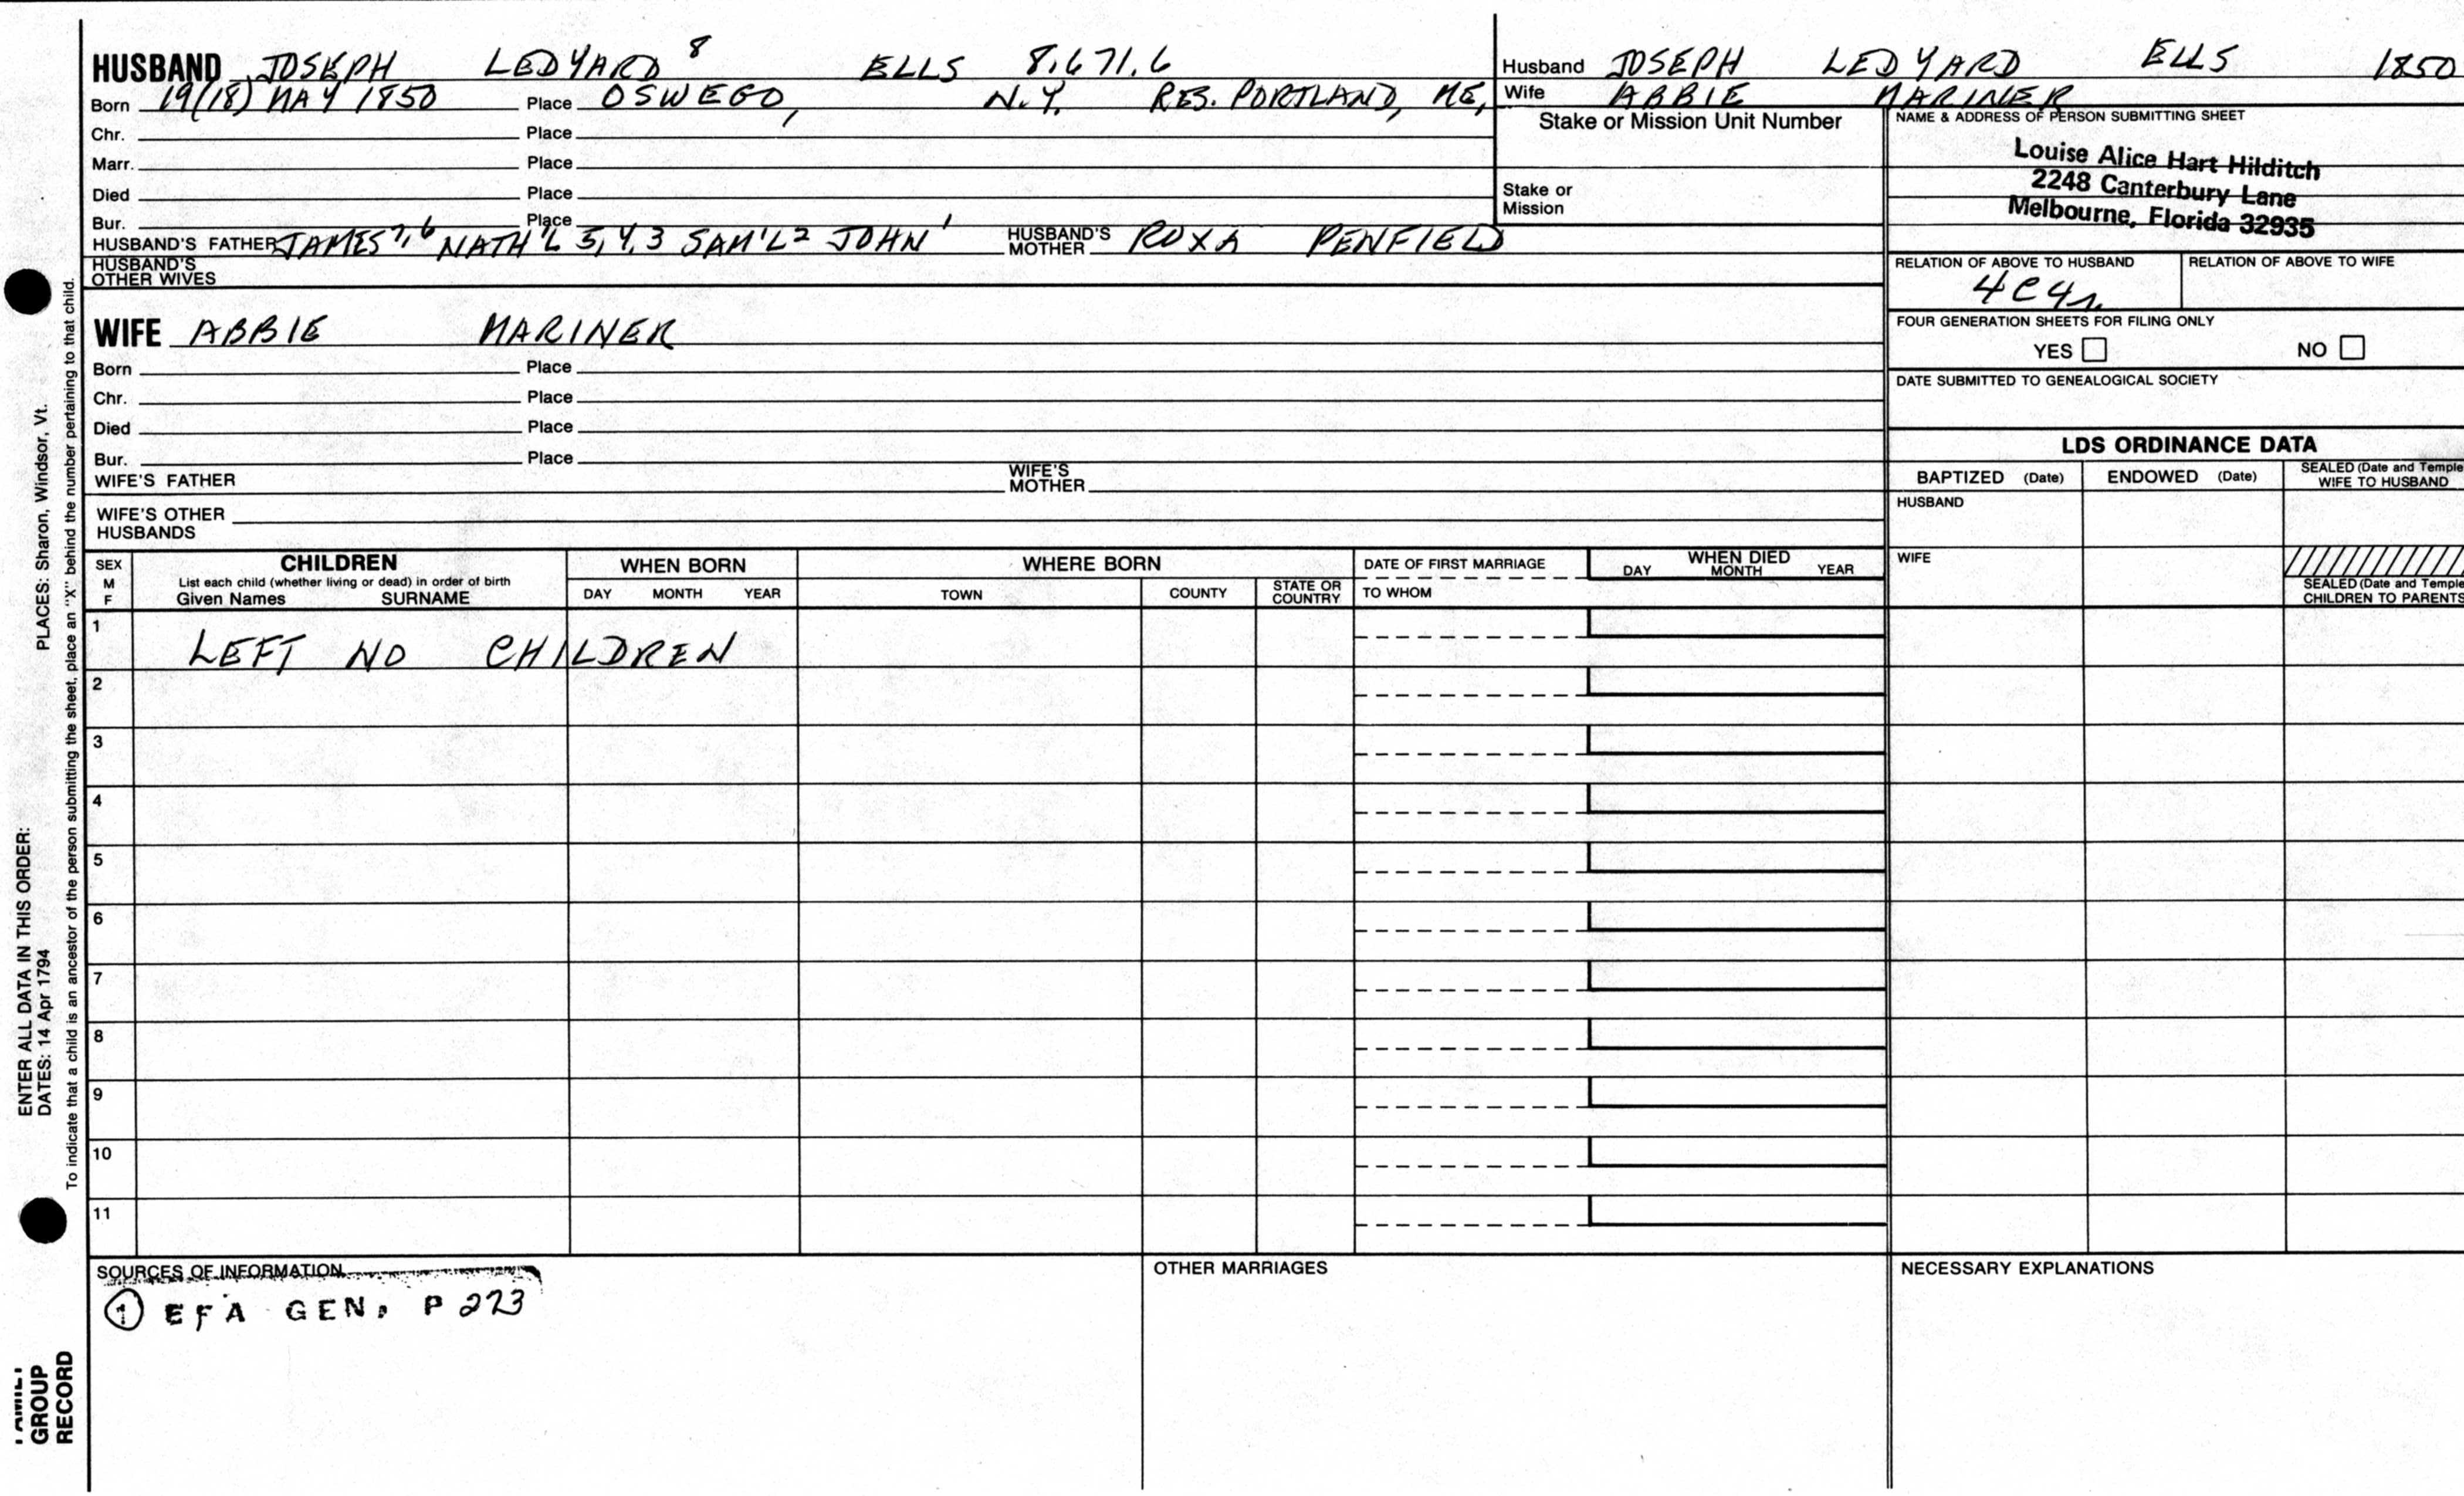 HUSBAND JOSEPH LEDYARD 8 ELLS 8.671.6
Born 19(18) MAY 1850 Place OSWEGO, N.Y. RES. PORTLAND, ME,
Chr. Place
Marr. Place
Died Place
Bur. Place
HUSBAND'S FATHER JAMES 7,6 NATH'L 5,4,3 SAM'L 2 JOHN 1 HUSBAND'S MOTHER ROXA PENFIELD
HUSBAND'S OTHER WIVES
WIFE ABBIE MARINER
Born Place
Chr. Place
Died Place
Bur. Place
WIFE'S FATHER WIFE'S MOTHER
WIFE'S OTHER HUSBANDS
Husband JOSEPH LEDYARD ELLS 1850
Wife ABBIE MARINER
Stake or Mission Unit Number
Stake or Mission
NAME & ADDRESS OF PERSON SUBMITTING SHEET
Louise Alice Hart Hilditch
2248 Canterbury Lane
Melbourne, Florida 32935
RELATION OF ABOVE TO HUSBAND RELATION OF ABOVE TO WIFE
4C4r
FOUR GENERATION SHEETS FOR FILING ONLY
YES NO
DATE SUBMITTED TO GENEALOGICAL SOCIETY
LDS ORDINANCE DATA
BAPTIZED (Date) ENDOWED (Date) SEALED (Date and Temple
WIFE TO HUSBAND
HUSBAND
WIFE
SEALED (Date and Temple
CHILDREN TO PARENTS
SEX
M
F
CHILDREN
List each child (whether living or dead) in order of birth
Given Names SURNAME
WHEN BORN
DAY MONTH YEAR
WHERE BORN
TOWN COUNTY STATE OR COUNTRY
DATE OF FIRST MARRIAGE
TO WHOM
WHEN DIED
DAY MONTH YEAR
1 LEFT NO CHILDREN
2
3
4
5
6
7
8
9
10
11
SOURCES OF INFORMATION
1 EFA GEN. P 273
OTHER MARRIAGES
NECESSARY EXPLANATIONS
ENTER ALL DATA IN THIS ORDER:
DATES: 14 Apr 1794 PLACES: Sharon, Windsor, Vt.
To indicate that a child is an ancestor of the person submitting the sheet, place an "X" behind the number pertaining to that child.
FAMILY
GROUP
RECORD